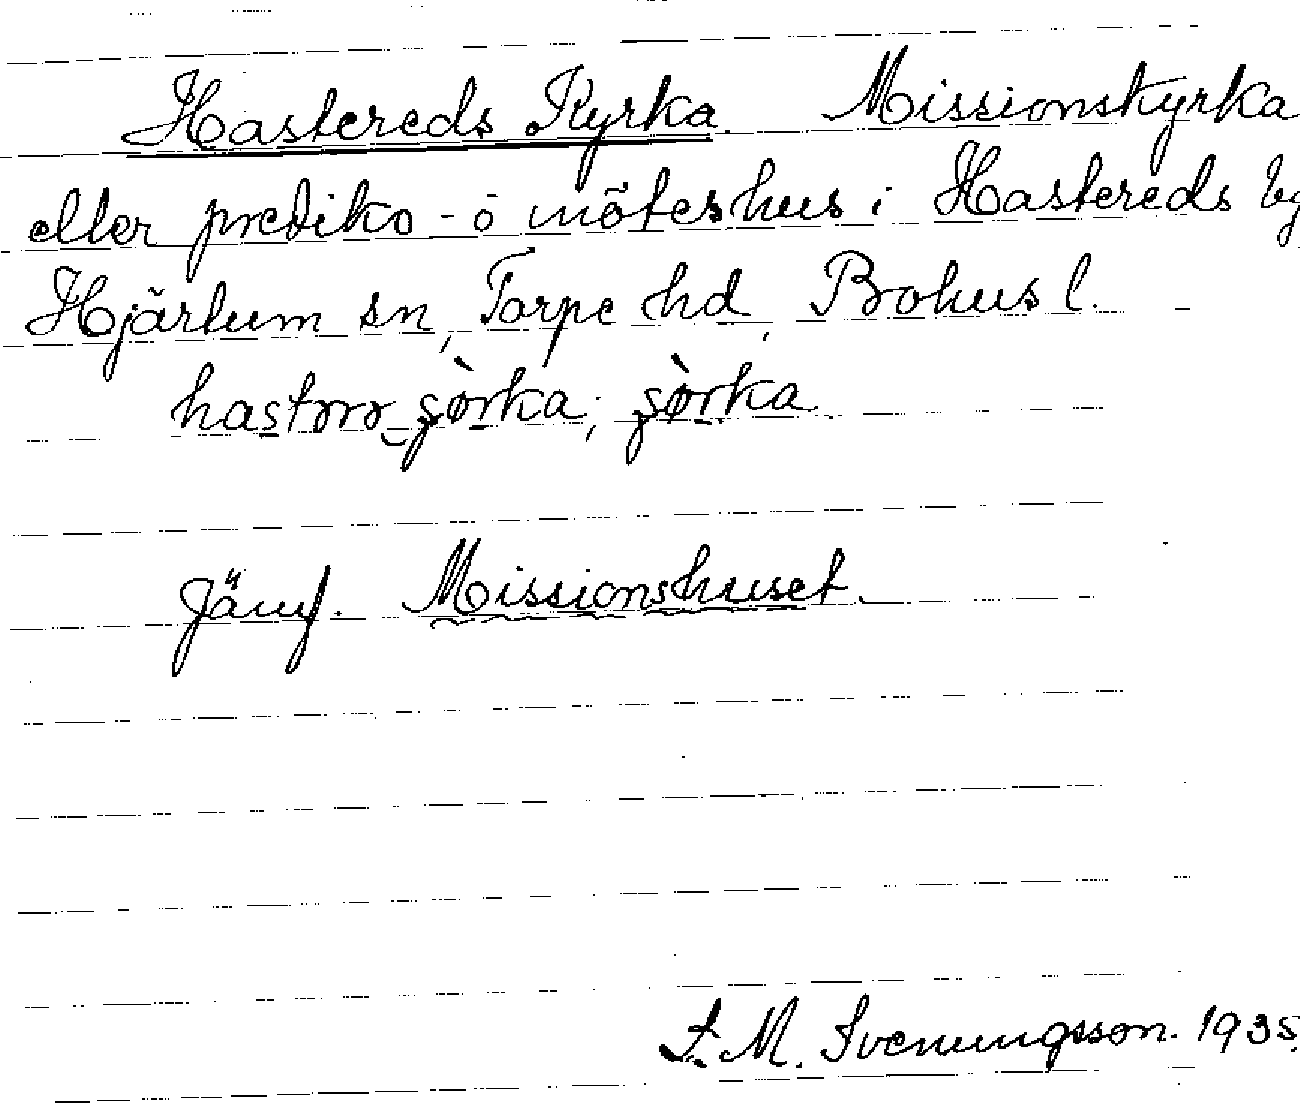 Hastereds Kyrka. Missionskyrka
eller prediko- o mötes hus i Hastereds by
Hjärtum sn, Torpe hd, Bohus l.
Jämf. Missionshuset.
F. M. Svenungsson. 1935.